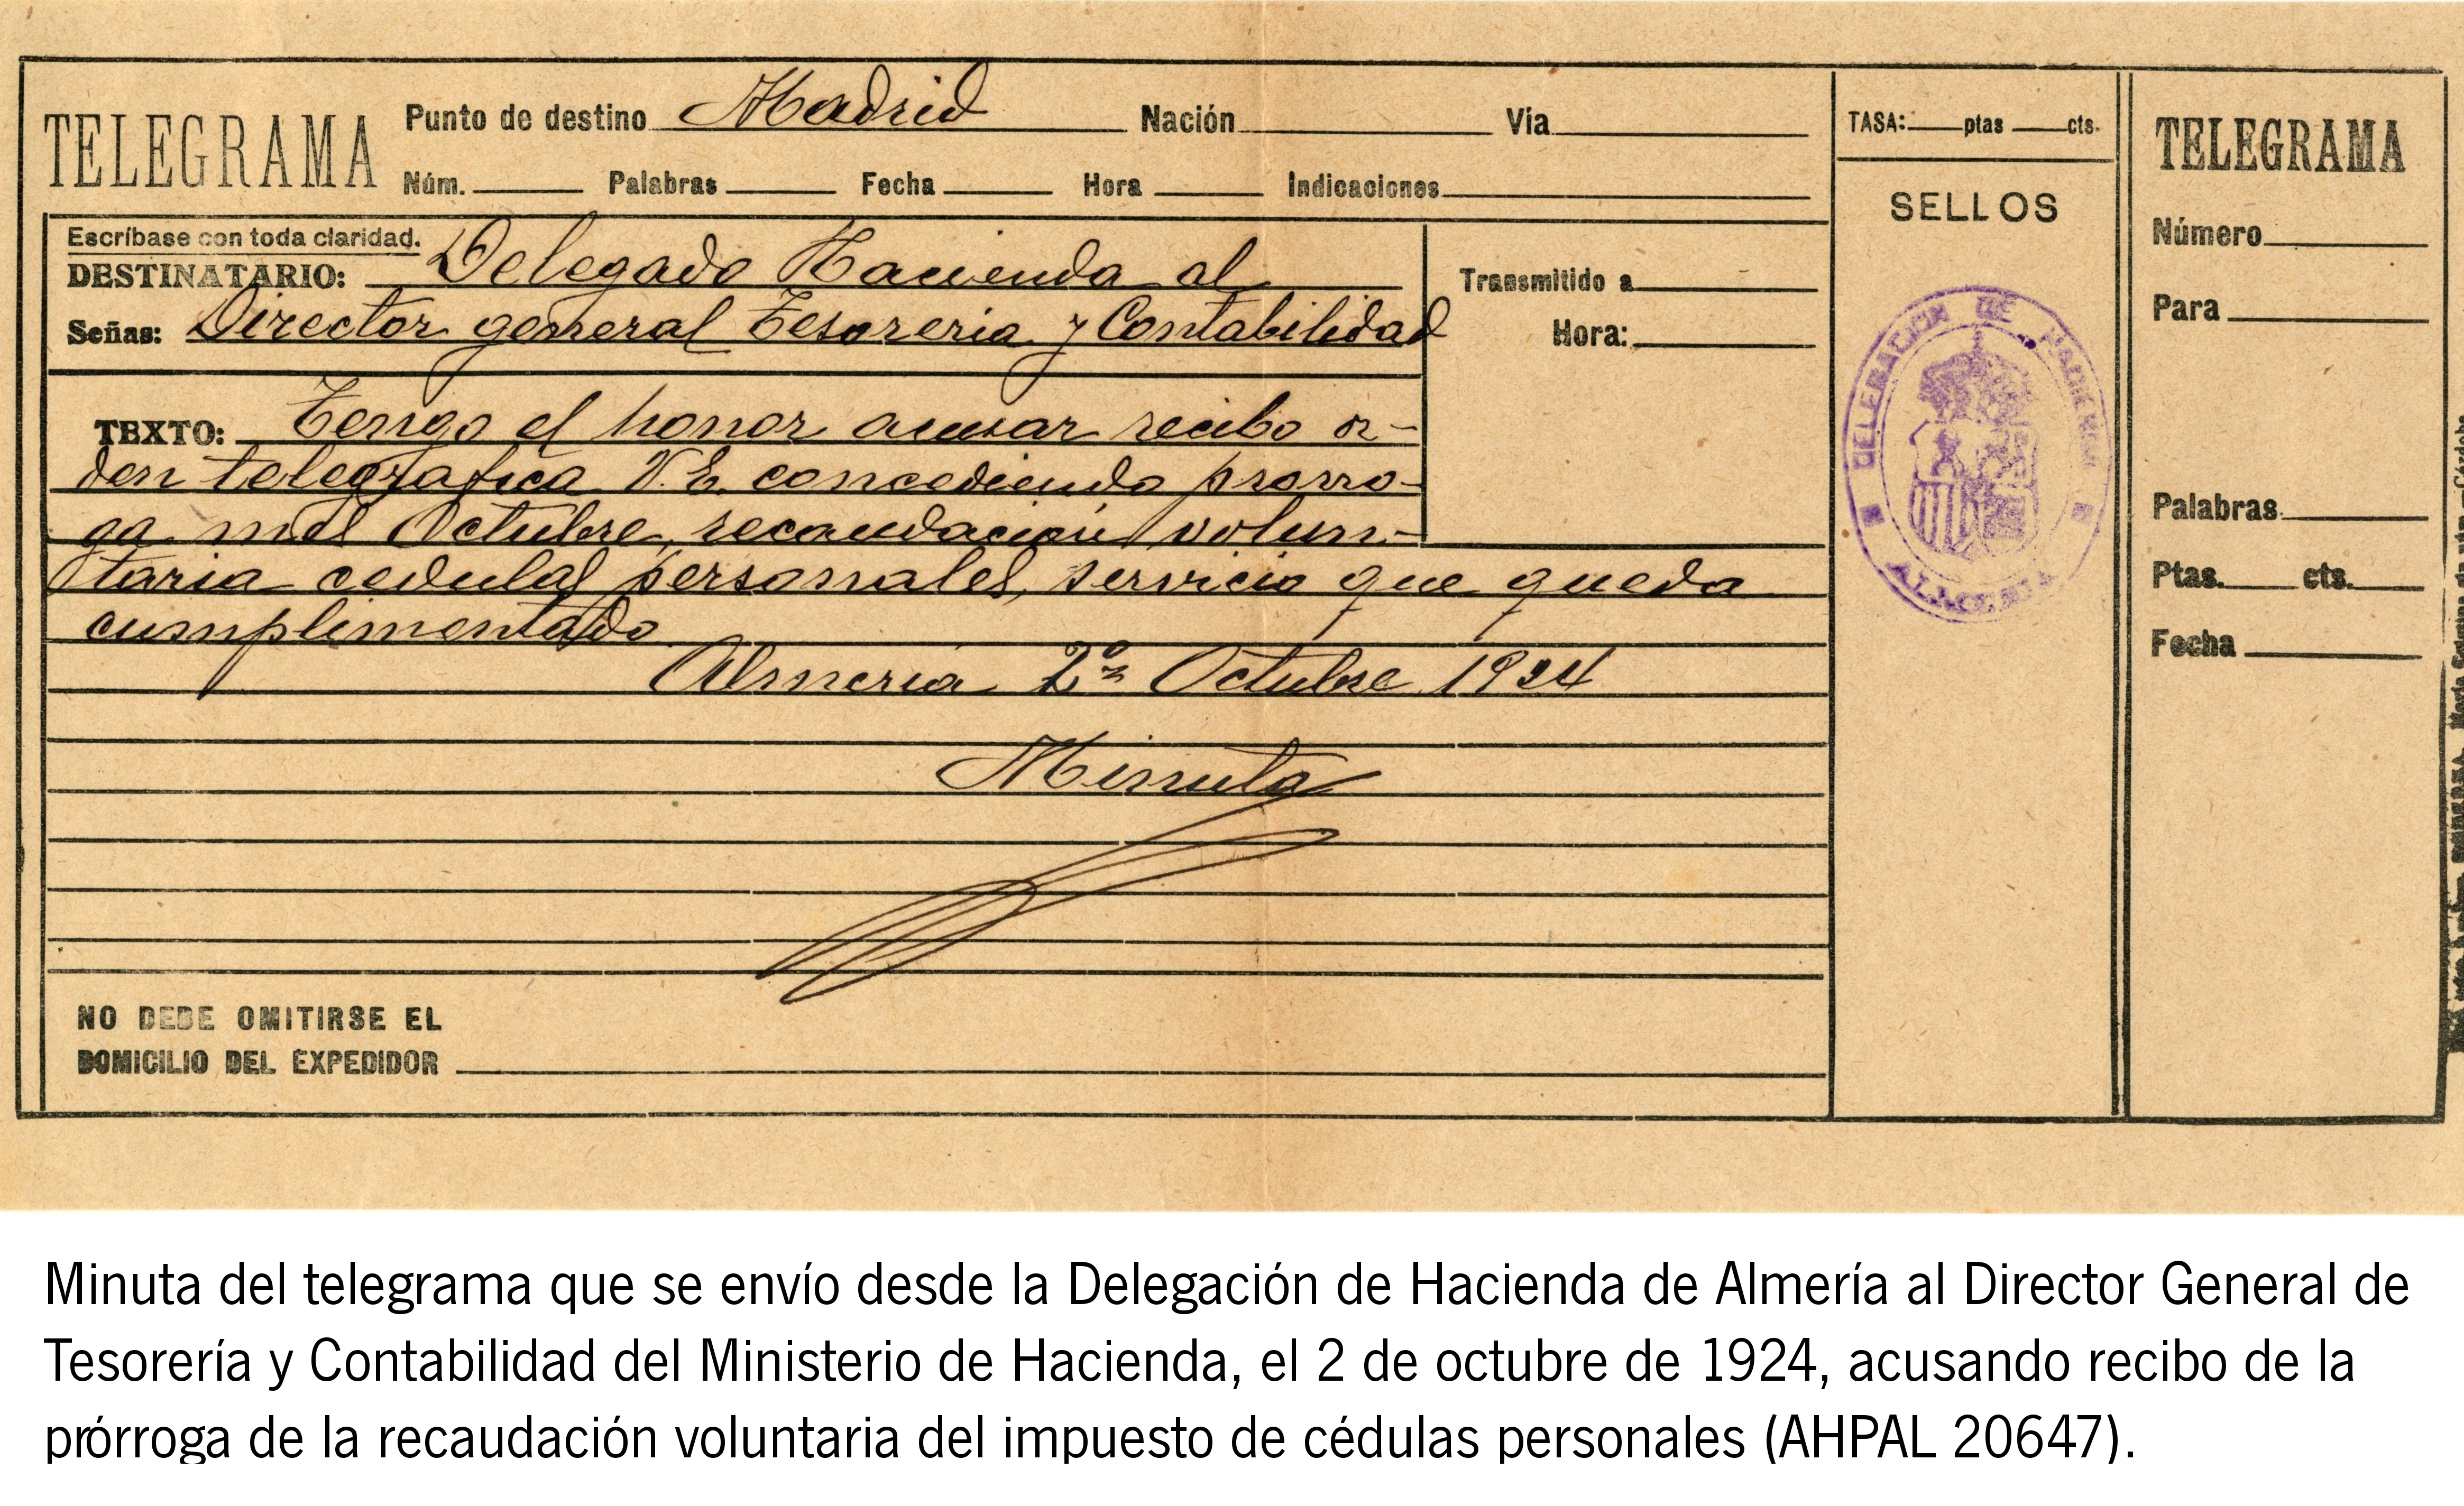 TELEGRAMA
Punto de destino Madrid Nación Vía
Núm. Palabras Fecha Hora Indicaciones
Escríbase con toda claridad.
DESTINATARIO: Delegado Hacienda al
Señas: Director general Tesoreria y Contabilidad
TEXTO: Tengo el honor acusar recibo or-
den telegrafica V.E. concediendo prorro-
ga mes Octubre, recaudación volun-
taria cedulas personales, servicio que queda
cumplimentado
Almeria 2 Octubre 1924
Minuta
NO DEBE OMITIRSE EL
DOMICILIO DEL EXPEDIDOR
Transmitido a
Hora:
TASA: ptas cts.
SELLOS
DELEGACION DE HACIENDA
TELEGRAMA
Número
Para
Palabras
Ptas. cts.
Fecha
Minuta del telegrama que se envío desde la Delegación de Hacienda de Almería al Director General de
Tesorería y Contabilidad del Ministerio de Hacienda, el 2 de octubre de 1924, acusando recibo de la
prórroga de la recaudación voluntaria del impuesto de cédulas personales (AHPAL 20647).